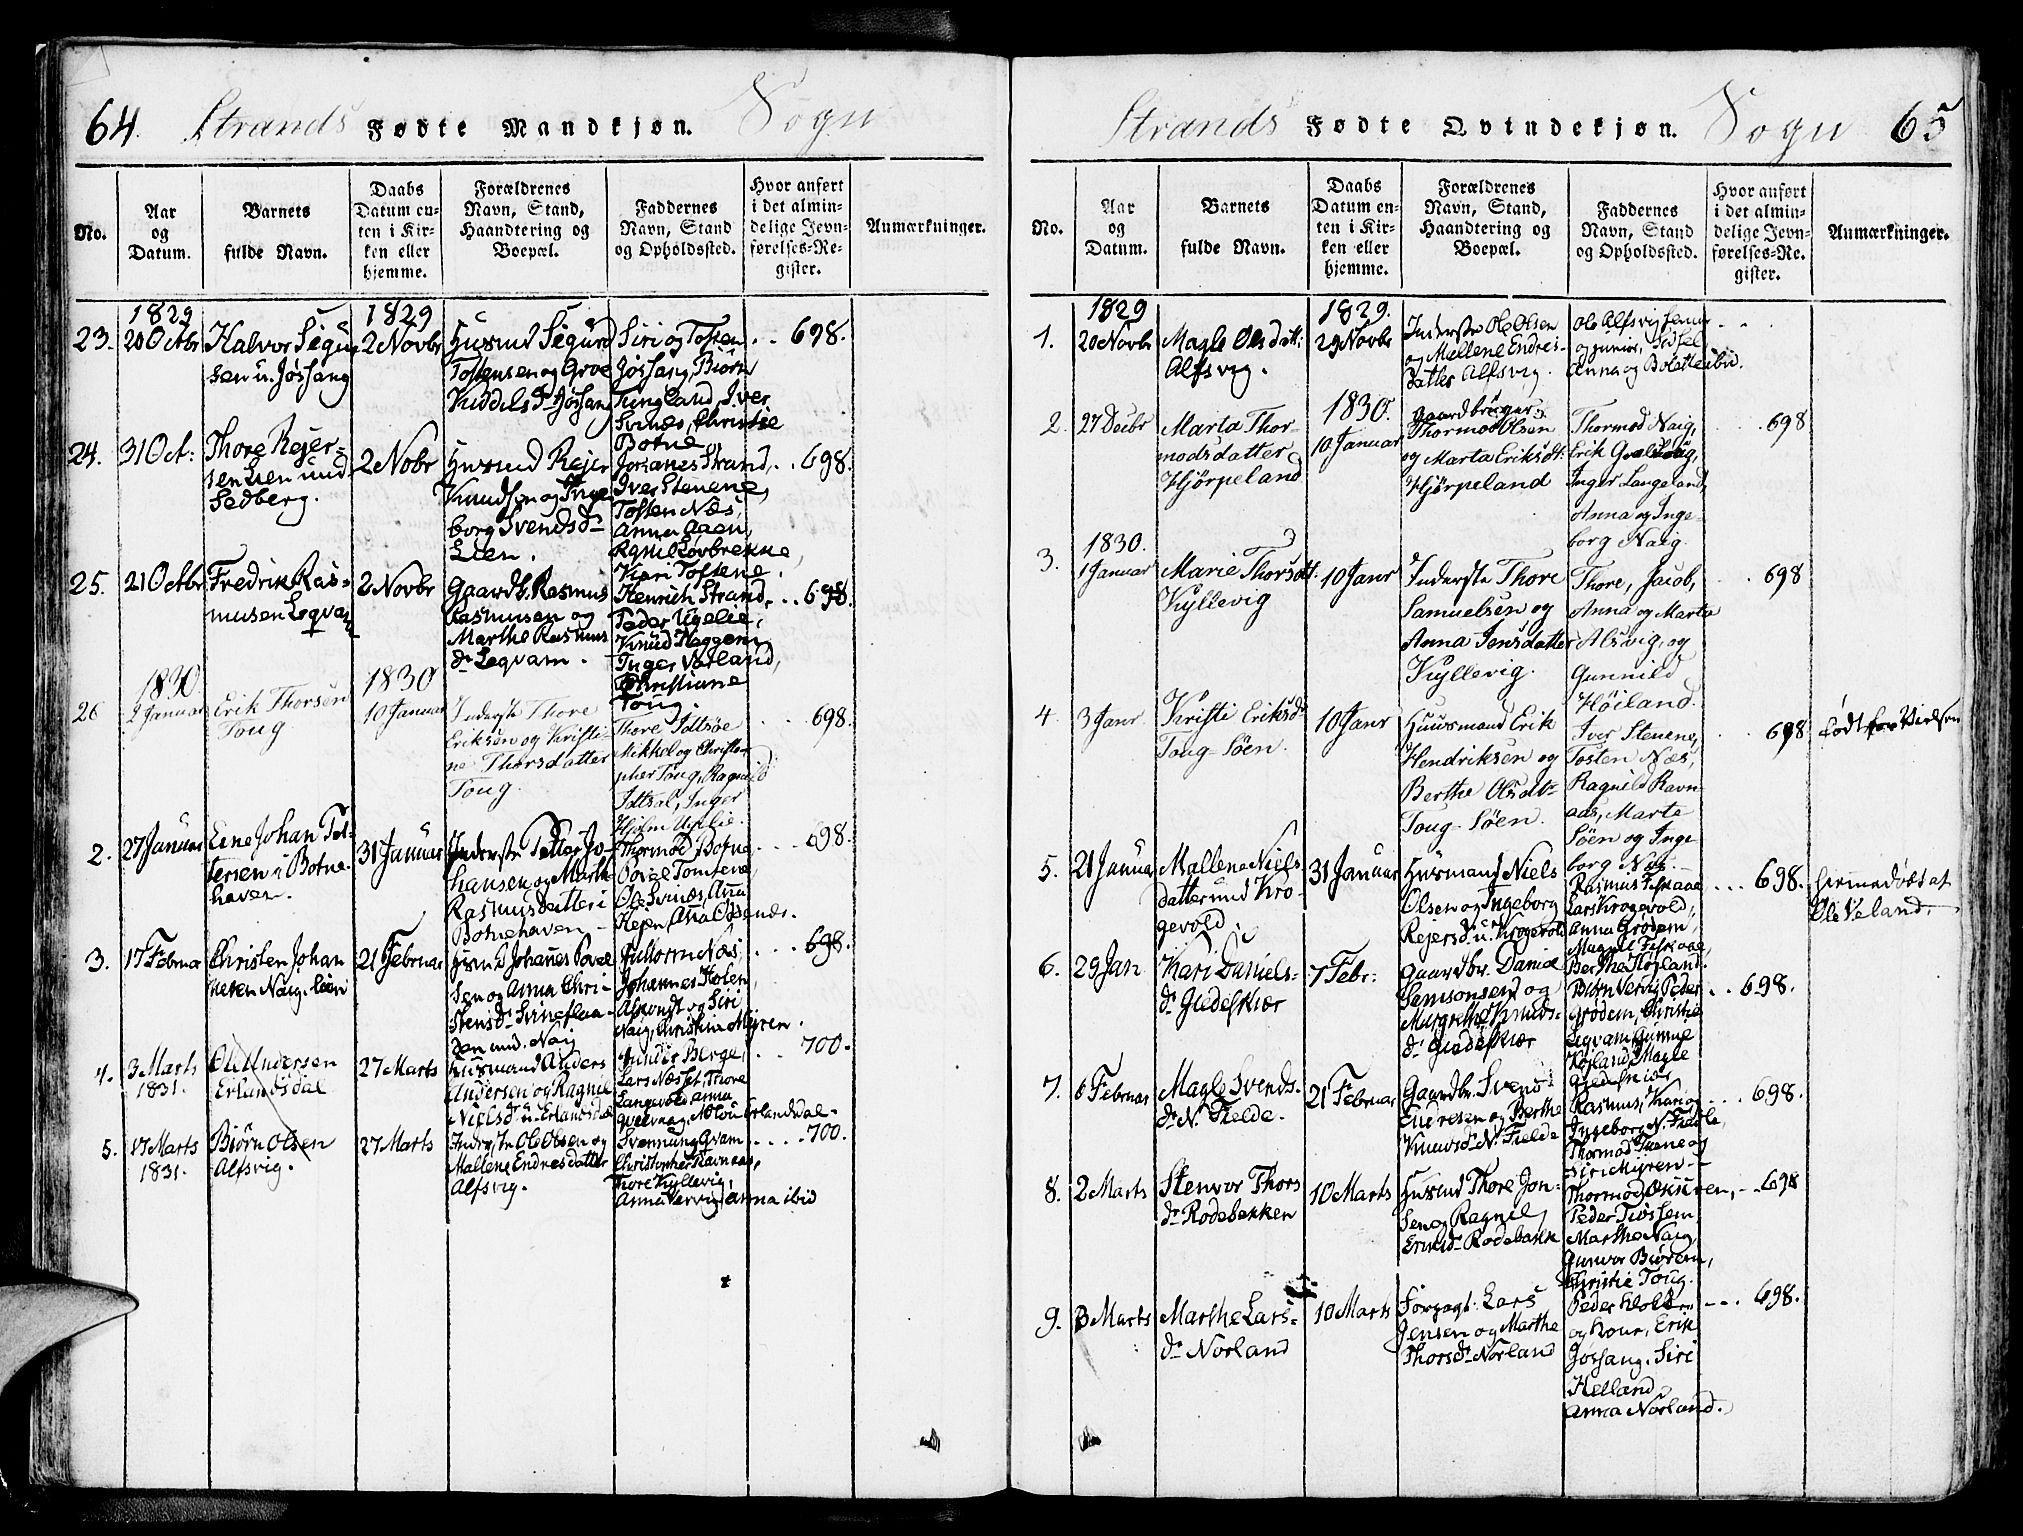 64. Strands Fødte Mandkjøn. Sogn
No.
Aar og Datum.
Barnets fulde Navn.
Daabs Datum enten i Kirken eller hjemme.
Forældrenes Navn, Stand, Haandtering og Boepæl.
Faddernes Navn, Stand og Opholdssted.
Hvor anført i det almindelige Jevnførelses-Register.
Anmærkninger.
1829
1829
23. 20 Octbr
Halvor Sigur
sen u. Jøssang
2 Novbr
Husmd Sigurd
Tostensen og Groe
Kieddelsdr Jøssang
Siri og Tosten
Jøssang, Biørn
Tungland, Iver
Svines, Christie
Botne
698.
24. 31 Oct:
Thore Rejer-
sen Lien und
Sedberg.
2 Nobr
Husmd Rejer
Knudsen og Inge
borg Svendsdr
Lien.
Johanes Strand,
Iver Stenene,
Tosten Næs,
Anna Aaen,
Ragnil Løvbrekke,
698.
25. 21 Octbr
Fredrik Ras-
musen Leqvam
2 Novbr
Gaardb. Rasmus
Rasmusen og
Marthe Rasmus
dr Leqvam.
Kari Tostene.
Henrich Strand,
Peder Ugelie,
Knud Heggem
Inger Vatland,
Christiane
Toug.
698.
1830
1830
26 2 Januar
Erik Thorsen
Toug
10 Januar
Inderste Thore
Eriksen og Kristi-
ne Thorsdatter
Toug.
Thore Idtsøe
Mikkel og Christo
pher Toug, Ragnild
Idtsal, Inger
Hjelm Uglie.
698.
2. 27 Januar
Ene Johan Pet-
tersen i Botne-
haven.
31 Januar
Inderste Petter Jo-
hansen og Marth
Rasmusdatter i
Botnehaven
Thormod Botne
Ole Svines, Ana
698.
3. 17 Februar
Christen Johan
nesen Naig. Lien
21 Februar
Husmd Johanes Povel
sen og Anna Chri-
stensdr
den und. Nag
Guttorm Næs,
Johannes Holen,
Asmondt og Siri
Naig, Christina Myren.
698.
4. 3 Marts
1831.
Ole Andersen
Erlandsdal
27 Marts
Husmand Anders
Andersen og Ragnil
Nielsdr u. Erlandsdal
Gunder Berge,
Lars Nesset, Thore
Langevold, Anna
Erlandsdal
700.
5. 17 Marts
1831.
Biørn Olsen
Alfsvig.
27 Marts
Inderste Ole Olsen og
Mallene Endresdatter
Alfsvig.
Svennung Qvam
Christopher Ravnaas,
Thore Kyllevig,
Anna Vervig, Anna ibid
700.
Strands Fødte Qvindekjøn. Sogn 65
No.
Aar og Datum.
Barnets fulde Navn.
Daabs Datum enten i Kirken eller hjemme.
Forældrenes Navn, Stand, Haandtering og Boepæl.
Faddernes Navn, Stand og Opholdssted.
Hvor anført i det almindelige Jevnførelses-Register.
Anmærkninger.
1829
1829.
1. 20 Novbr
Magle Olsdatt:
Alfsvig.
29 Novbr
Inderste Ole Olsen
og Mallene Endres-
datter Alfsvig.
Ole Alfsvig senior
og junior, Sidsel
Anna og Bolette ibid.
1830.
2. 27 Decbr
Marta Thor-
modsdatter
Hjørpeland
10 Januar
Gaardbruger
Thormod Olsen
og Marta Eriksdt:
Hjørpeland
Thormod Naig,
Erik
Inger Langeland,
Anna og Inge-
borg Naig.
698
1830.
3. 1 Januar
Marie Thorsdt.
Kyllevig
10 Janr
Inderste Thore
Samuelsen og
Anna Jensdatter
Kyllevig.
Thore, Jacob,
Anna og Marta
Alsvig, og
Gunnild
Høiland.
698
4. 3 Janr
Kristi Eriksdr
Toug-Søen.
10 Janr
Huusmand Erik
Hendriksen og
Berthe Olsdtr
Toug-Søen.
Iver Stenene,
Tosten Næs,
Ragnild Ravn
aas, Marte
Søen og Inge
borg Næs.
698
Født før Vielsen
5. 21 Januar
Mallene Niels
datter und Kro-
gevold.
31 Januar
Husmand Niels
Olsen og Ingeborg
Rejersd. u. Krogevold
Rasmus Fiskaae
Lars Krogevold,
Anna Grødem,
Magnil Fiskaae,
Berthe Høiland.
698.
Hiemmedøbt af
Ole Veland.
6. 29 Jan
Kari Daniels-
dr Giedeskiær
7 Febr:
Gaardbr. Daniel
Samsonsen og
Margrethe Knuds-
dr Giedeskiær
Biørn Vervig, Peder
Grødem, Christie
Leqvam, Gunnil
Høiland, Magle
Giedeskiær
698.
7. 6 Februar
Magle Svends-
dr N. Fielde.
21 Februar
Gaardbr. Svend
Endresen og Berthe
Knudsdr N. Fielde
Rasmus, Kari og
Ingeborg N. Fielde,
Thormod Tkene og
Siri Myren
698.
8. 2 Marts
Stenvor Thors
dr Rødebekken
10 Marts
Husmd Thore Jon-
sen og Ragnil
Erichsdr Rødebækk
Thormod
Peder Tiøssem,
Marthe Naig
Gunvor Biørem,
Christie Toug.
698
9. 3 Marts
Marthe Lars-
dr Norland
10 Marts
Forpagt: Lars
Jensen og Marthe
Thorsdr Norland
Peder Holst
og Kone, Erik
Jøssang, Siri
Helland
Anna Norland.
698.